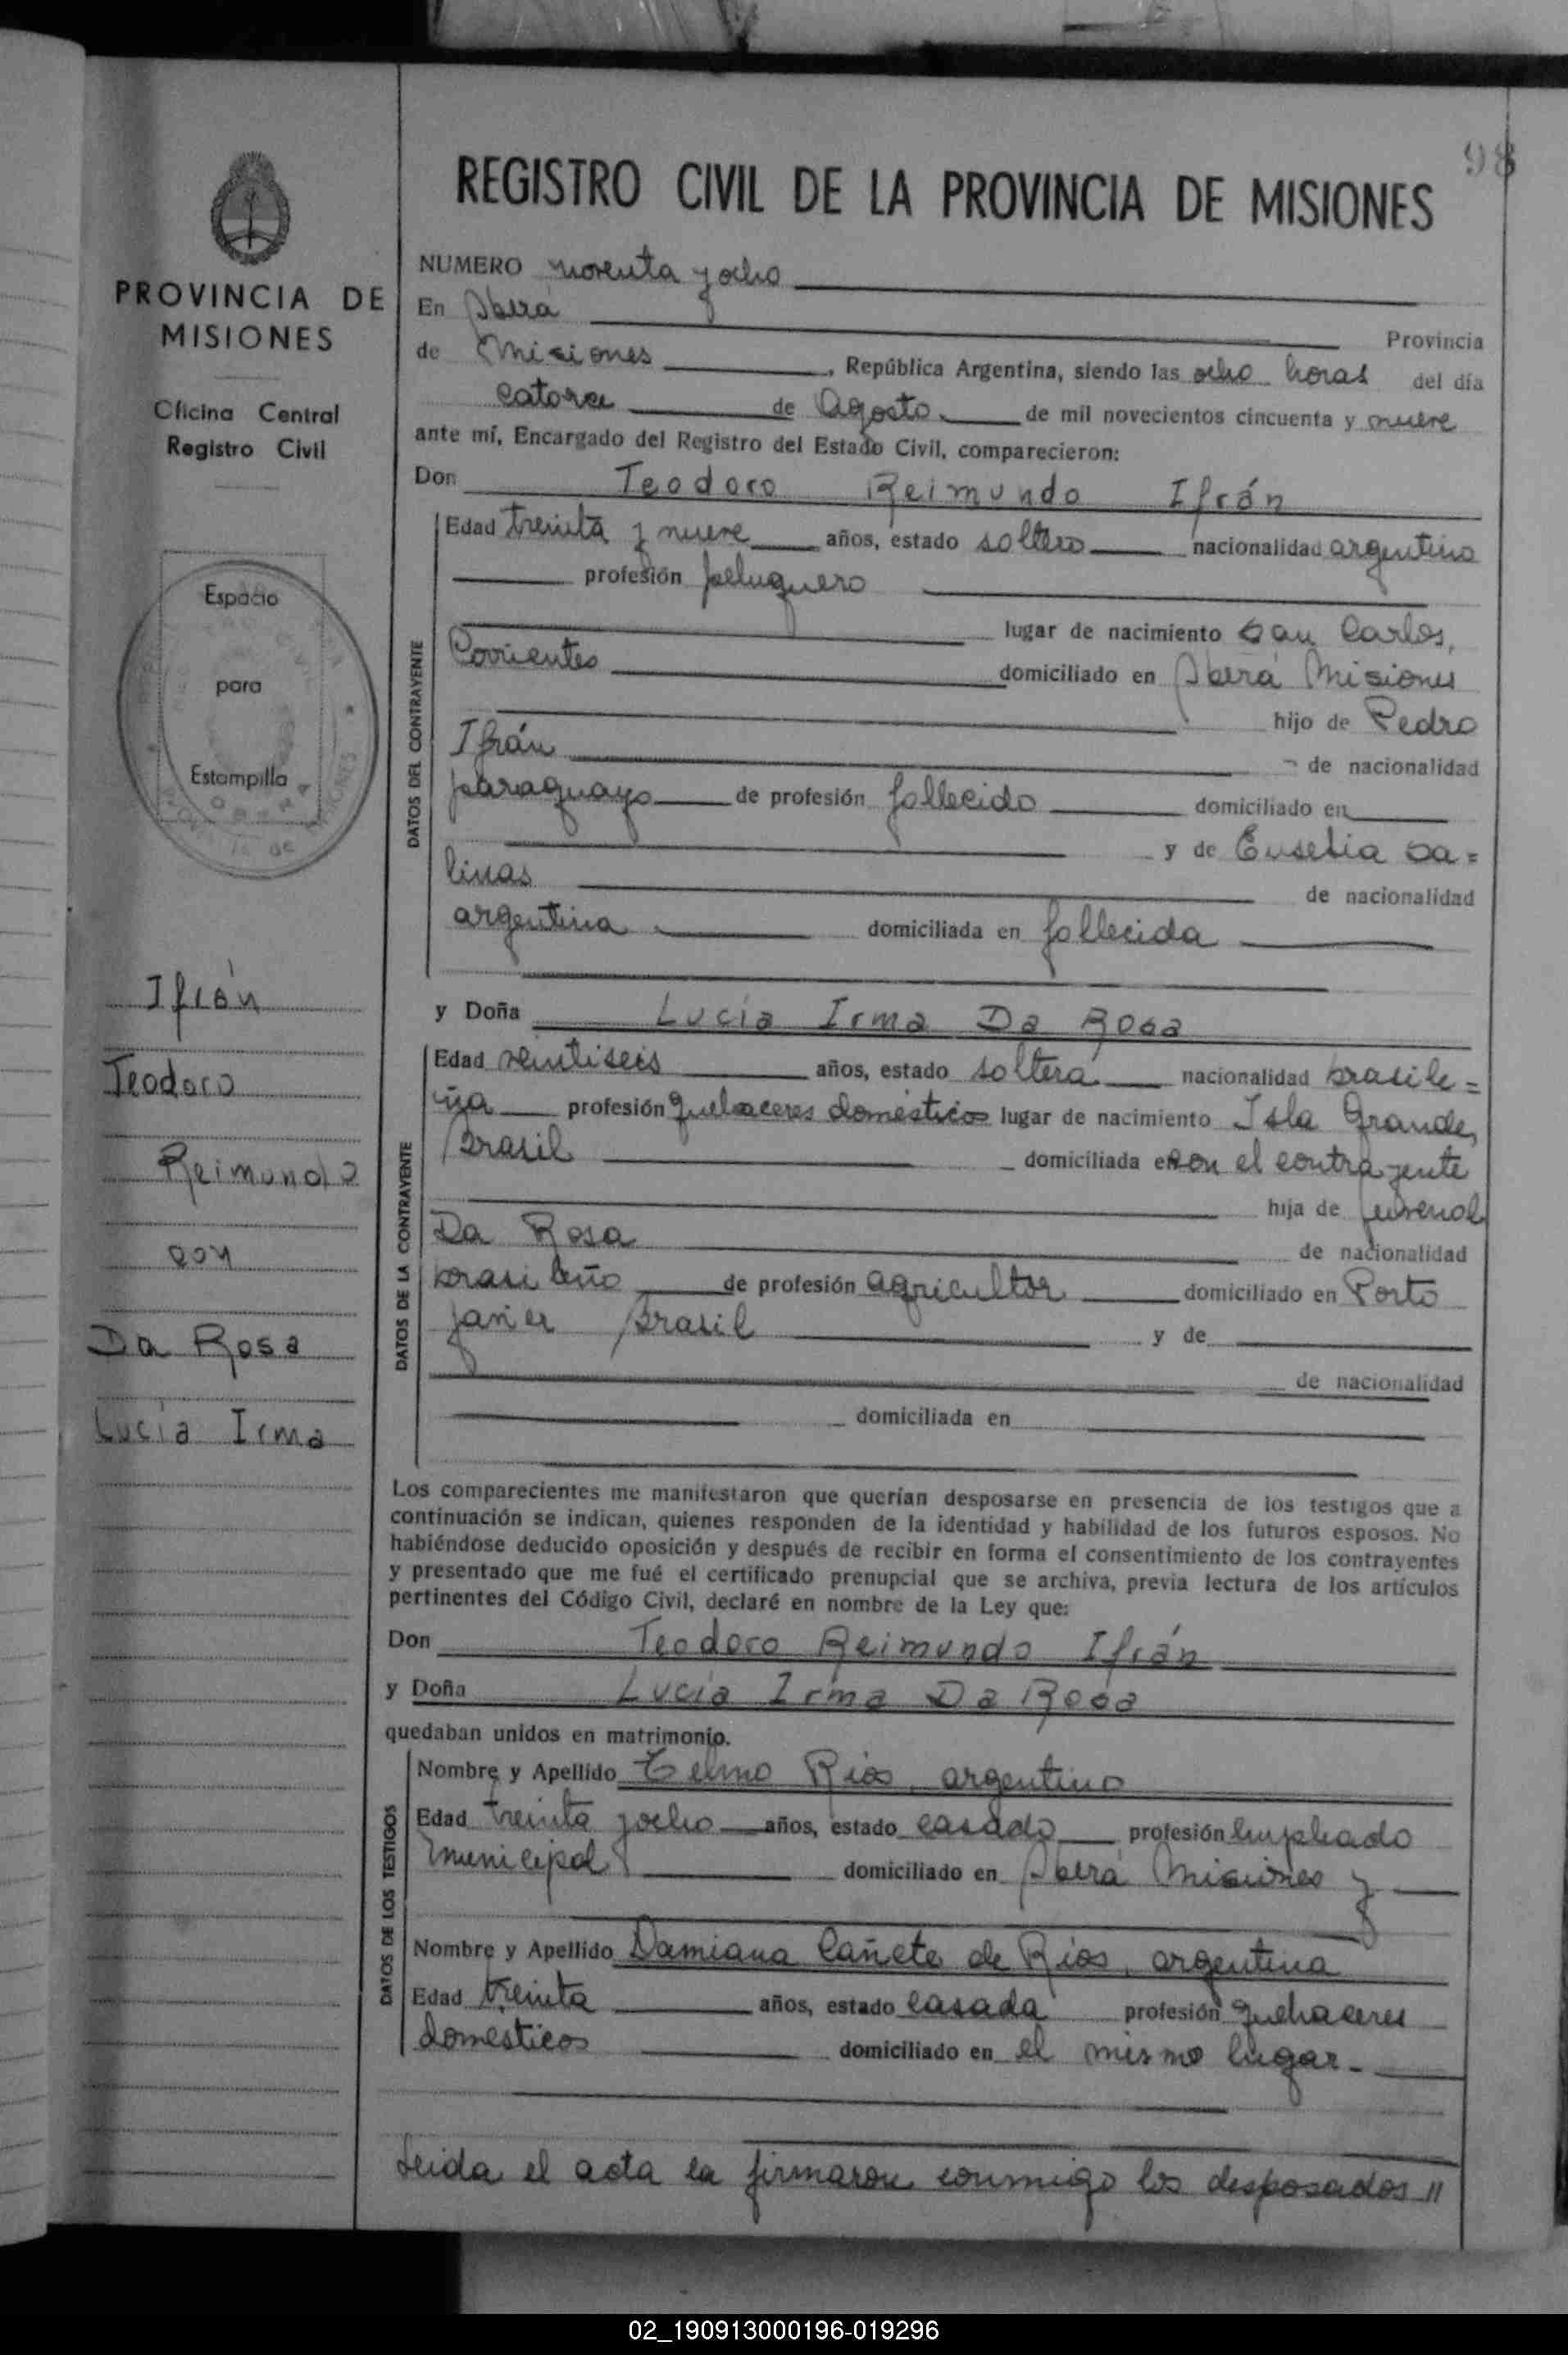 98
REGISTRO CIVIL DE LA PROVINCIA DE MISIONES
PROVINCIA DE
MISIONES
Oficina Central
Registro Civil
Espacio
para
Estampilla
Ifrán
Teodoro
Reimundo
con
Da Rosa
Lucía Irma
NUMERO noventa y ocho
En Oberá
Provincia
de Misiones, República Argentina, siendo las ocho horas del día
catorce de Agosto de mil novecientos cincuenta y nueve
ante mí, Encargado del Registro del Estado Civil, comparecieron:
Don Teodoro Reimundo Ifrán
DATOS DEL CONTRAYENTE
Edad treinta y nueve años, estado soltero nacionalidad argentino
profesión peluquero
lugar de nacimiento San Carlos,
Corrientes domiciliado en Oberá Misiones
hijo de Pedro
Ifrán de nacionalidad
paraguayo de profesión fallecido domiciliado en
y de Eusebia Sa=
linas de nacionalidad
argentina domiciliada en fallecida
y Doña Lucía Irma Da Rosa
DATOS DE LA CONTRAYENTE
Edad veintiseis años, estado soltera nacionalidad brasile=
ña profesión quehaceres domésticos lugar de nacimiento Isla Grande,
Brasil domiciliada en con el contrayente
hija de Juvenal
Da Rosa de nacionalidad
brasileño de profesión agricultor domiciliado en Porto
Janer Brasil y de
de nacionalidad
domiciliada en
Los comparecientes me manifestaron que querían desposarse en presencia de los testigos que a
continuación se indican, quienes responden de la identidad y habilidad de los futuros esposos. No
habiéndose deducido oposición y después de recibir en forma el consentimiento de los contrayentes
y presentado que me fué el certificado prenupcial que se archiva, previa lectura de los artículos
pertinentes del Código Civil, declaré en nombre de la Ley que:
Don Teodoro Reimundo Ifrán
y Doña Lucía Irma Da Rosa
quedaban unidos en matrimonio.
DATOS DE LOS TESTIGOS
Nombre y Apellido Telmo Rios, argentino
Edad treinta y ocho años, estado casado profesión empleado
municipal domiciliado en Oberá Misiones y
Nombre y Apellido Damiana Cañete de Rios, argentina
Edad treinta años, estado casada profesión quehaceres
domesticos domiciliado en el mismo lugar.
Leida el acta la firmaron conmigo los desposados //
02_190913000196-019296